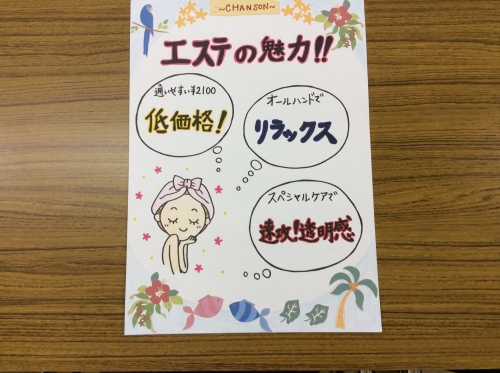 ～CHANSON～
エステの魅力!!
通いやすい¥2100
低価格!
オールハンドで
リラックス
スペシャルケアで
速攻!透明感